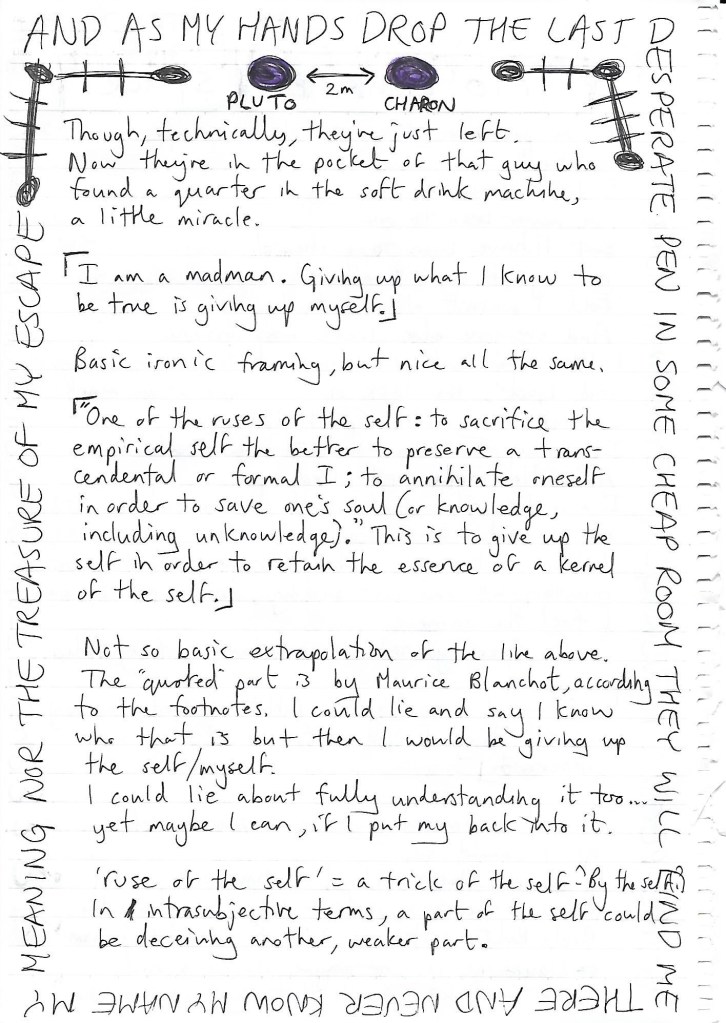 AND AS MY HANDS DROP THE LAST
DESPERATE PEN IN SOME CHEAP ROOM THEY WILL FIND ME
THERE AND NEVER KNOW MY NAME MY
MEANING NOR THE TREASURE OF MY ESCAPE
2m
PLUTO CHARON
Though, technically, they're just left.
Now they're in the pocket of that guy who
found a quarter in the soft drink machine,
a little miracle.
「I am a madman. Giving up what I know to
be true is giving up myself.」
Basic ironic framing, but nice all the same.
「"One of the ruses of the self: to sacrifice the
empirical self the better to preserve a trans-
cendental or formal I; to annihilate oneself
in order to save one's soul (or knowledge,
including unknowledge)." This is to give up the
self in order to retain the essence of a kernel
of the self.」
Not so basic extrapolation of the line above.
The "quoted" part is by Maurice Blanchot, according
to the footnotes. I could lie and say I know
who that is but then I would be giving up
the self/myself.
I could lie about fully understanding it too...
yet maybe I can, if I put my back into it.
'ruse of the self' = a trick of the self - By the self(?)
In intrasubjective terms, a part of the self could
be deceiving another, weaker part.